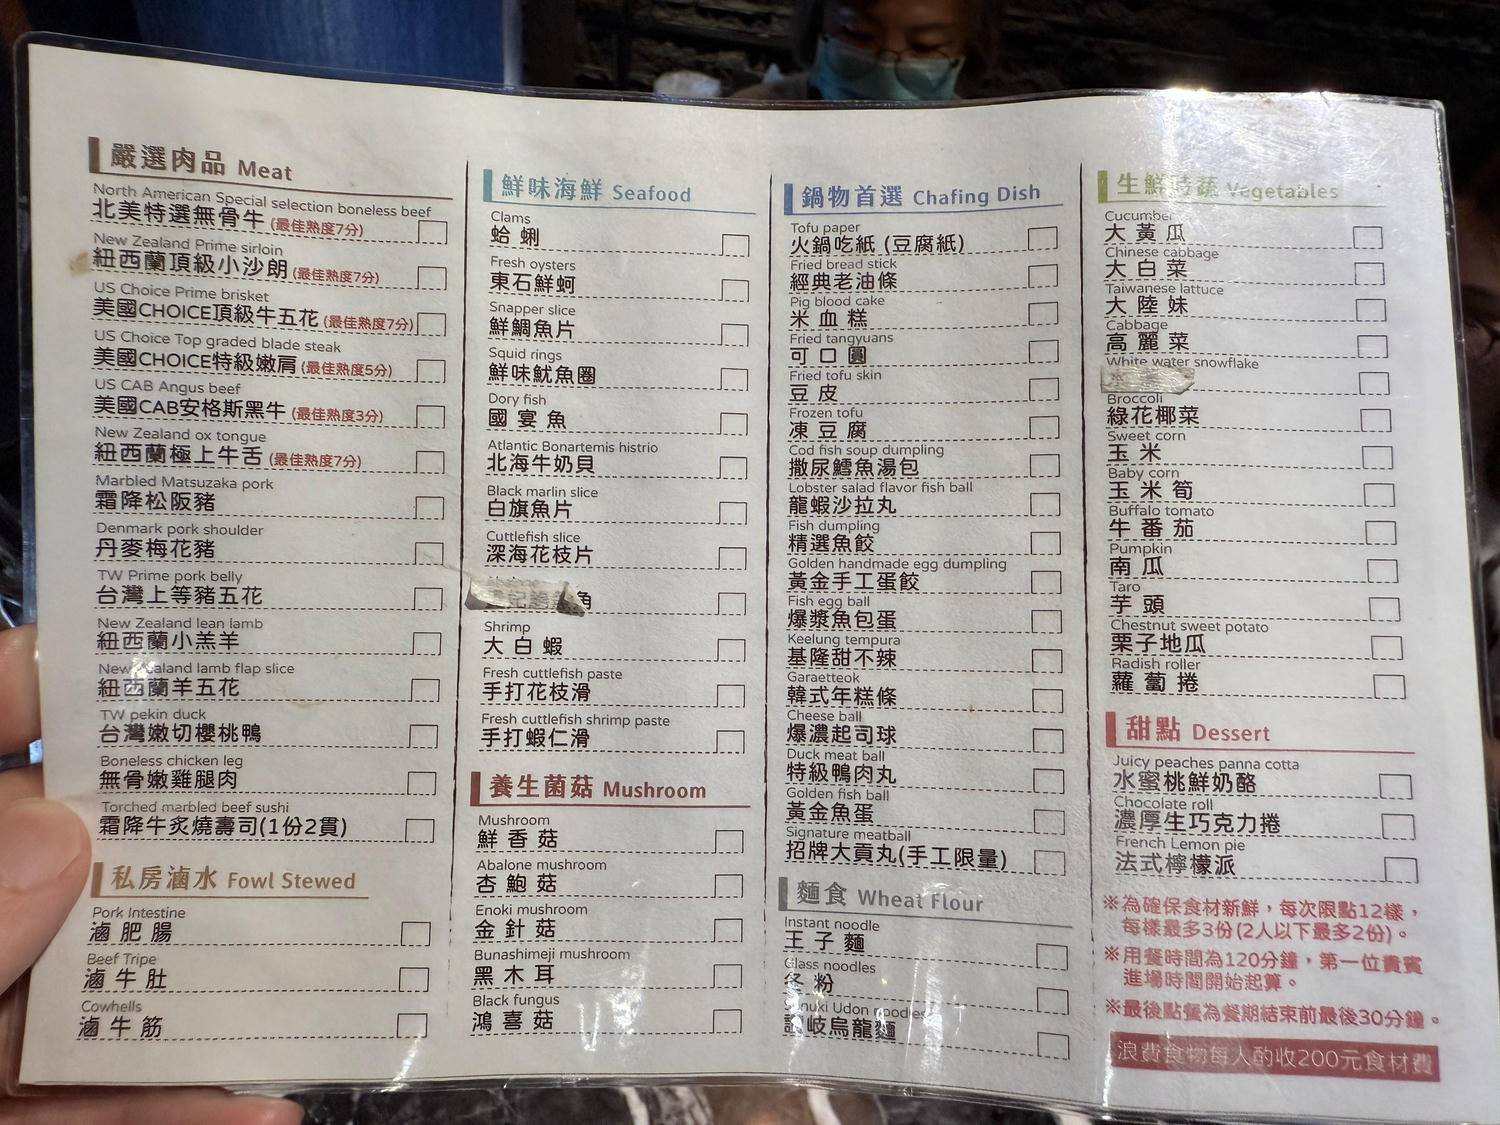 嚴選肉品 Meat
North American Special selection boneless beef
北美特選無骨牛 (最佳熟度7分)
New Zealand Prime sirloin
紐西蘭頂級小沙朗 (最佳熟度7分)
US Choice Prime brisket
美國CHOICE頂級牛五花 (最佳熟度7分)
US Choice Top graded blade steak
美國CHOICE特級嫩肩 (最佳熟度5分)
US CAB Angus beef
美國CAB安格斯黑牛 (最佳熟度3分)
New Zealand ox tongue
紐西蘭極上牛舌 (最佳熟度7分)
Marbled Matsuzaka pork
霜降松阪豬
Denmark pork shoulder
丹麥梅花豬
TW Prime pork belly
台灣上等豬五花
New Zealand lean lamb
紐西蘭小羔羊
New Zealand lamb flap slice
紐西蘭羊五花
TW pekin duck
台灣嫩切櫻桃鴨
Boneless chicken leg
無骨嫩雞腿肉
Torched marbled beef sushi
霜降牛炙燒壽司(1份2貫)
私房滷水 Fowl Stewed
Pork Intestine
滷肥腸
Beef Tripe
滷牛肚
Cowhells
滷牛筋
鮮味海鮮 Seafood
Clams
蛤蜊
Fresh oysters
東石鮮蚵
Snapper slice
鮮鯛魚片
Squid rings
鮮味魷魚圈
Dory fish
國宴魚
Atlantic Bonartemis histrio
北海牛奶貝
Black marlin slice
白旗魚片
Cuttlefish slice
深海花枝片
角
Shrimp
大白蝦
Fresh cuttlefish paste
手打花枝滑
Fresh cuttlefish shrimp paste
手打蝦仁滑
養生菌菇 Mushroom
Mushroom
鮮香菇
Abalone mushroom
杏鮑菇
Enoki mushroom
金針菇
Bunashimeji mushroom
黑木耳
Black fungus
鴻喜菇
鍋物首選 Chafing Dish
Tofu paper
火鍋吃紙 (豆腐紙)
Fried bread stick
經典老油條
Pig blood cake
米血糕
Fried tangyuans
可口圓
Fried tofu skin
豆皮
Frozen tofu
凍豆腐
Cod fish soup dumpling
撒尿鱈魚湯包
Lobster salad flavor fish ball
龍蝦沙拉丸
Fish dumpling
精選魚餃
Golden handmade egg dumpling
黃金手工蛋餃
Fish egg ball
爆漿魚包蛋
Keelung tempura
基隆甜不辣
Garaetteok
韓式年糕條
Cheese ball
爆濃起司球
Duck meat ball
特級鴨肉丸
Golden fish ball
黃金魚蛋
Signature meatball
招牌大貢丸(手工限量)
麵食 Wheat Flour
Instant noodle
王子麵
Glass noodles
冬粉
Sanuki Udon noodles
讚岐烏龍麵
生鮮時蔬 Vegetables
Cucumber
大黃瓜
Chinese cabbage
大白菜
Taiwanese lattuce
大陸妹
Cabbage
高麗菜
White water snowflake
Broccoli
綠花椰菜
Sweet corn
玉米
Baby corn
玉米筍
Buffalo tomato
牛番茄
Pumpkin
南瓜
Taro
芋頭
Chestnut sweet potato
栗子地瓜
Radish roller
蘿蔔捲
甜點 Dessert
Juicy peaches panna cotta
水蜜桃鮮奶酪
Chocolate roll
濃厚生巧克力捲
French Lemon pie
法式檸檬派
※為確保食材新鮮，每次限點12樣，
每樣最多3份(2人以下最多2份)。
※用餐時間為120分鐘，第一位貴賓
進場時間開始起算。
※最後點餐為餐期結束前最後30分鐘。
浪費食物每人酌收200元食材費